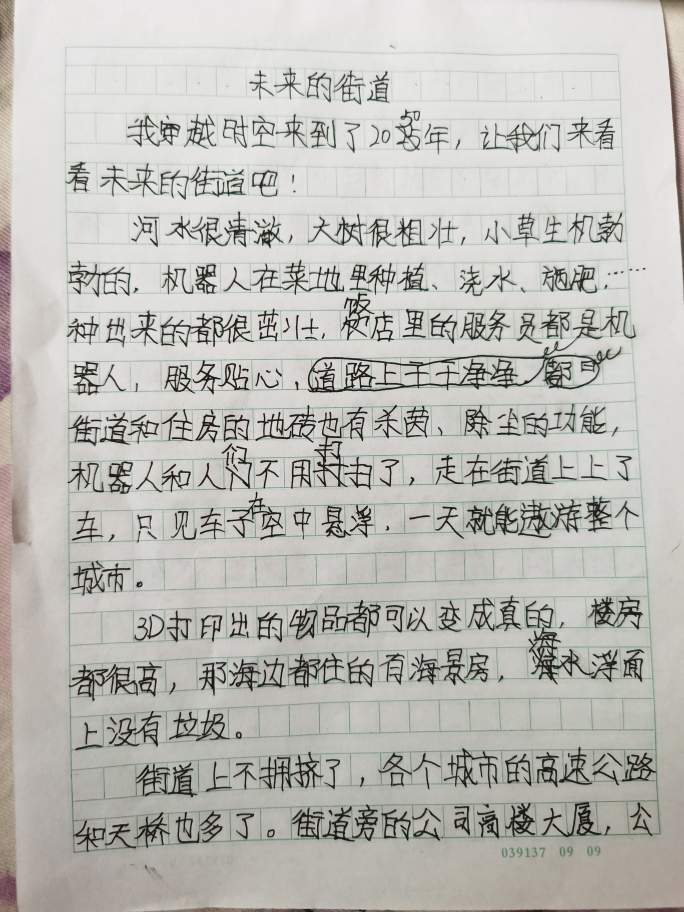 未来的街道
我穿越时空来到了20年，让我们来看
看未来的街道吧！
河水很清澈，大树很粗壮，小草生机勃
勃的，机器人在菜地里种植、浇水、施肥……
种出来的都很茁壮，饭店里的服务员都是机
器人，服务贴心，道路上干干净净，都
街道和住房的地砖也有杀菌、除尘的功能，
机器人和人们不用打扫了，走在街道上上了
车，只见车子在空中悬浮，一天就能遨游整个
城市。
3D打印出的物品都可以变成真的，楼房
都很高，那海边都住的有海景房，海水浮面
上没有垃圾。
街道上不拥挤了，各个城市的高速公路
和天桥也多了。街道旁的公司高楼大厦，公
039137 09 09